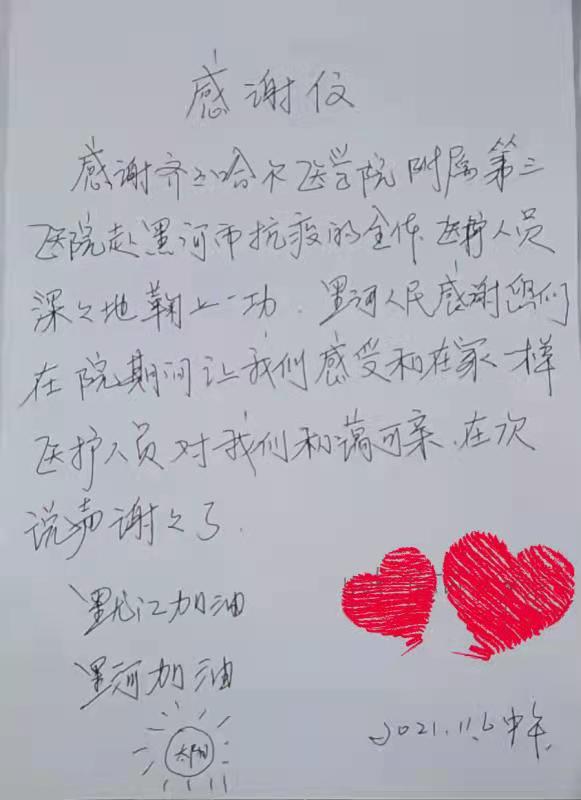 感谢仪
感谢齐齐哈尔医学院附属第三
医院赴黑河市抗疫的全体医护人员
深々地鞠上一功.黑河人民感谢您们
在院期间让我们感受和在家一样
医护人员对我们和蔼可亲.在次
说声谢々了.
黑龙江加油
黑河加油
太阳
2021.11.6中午